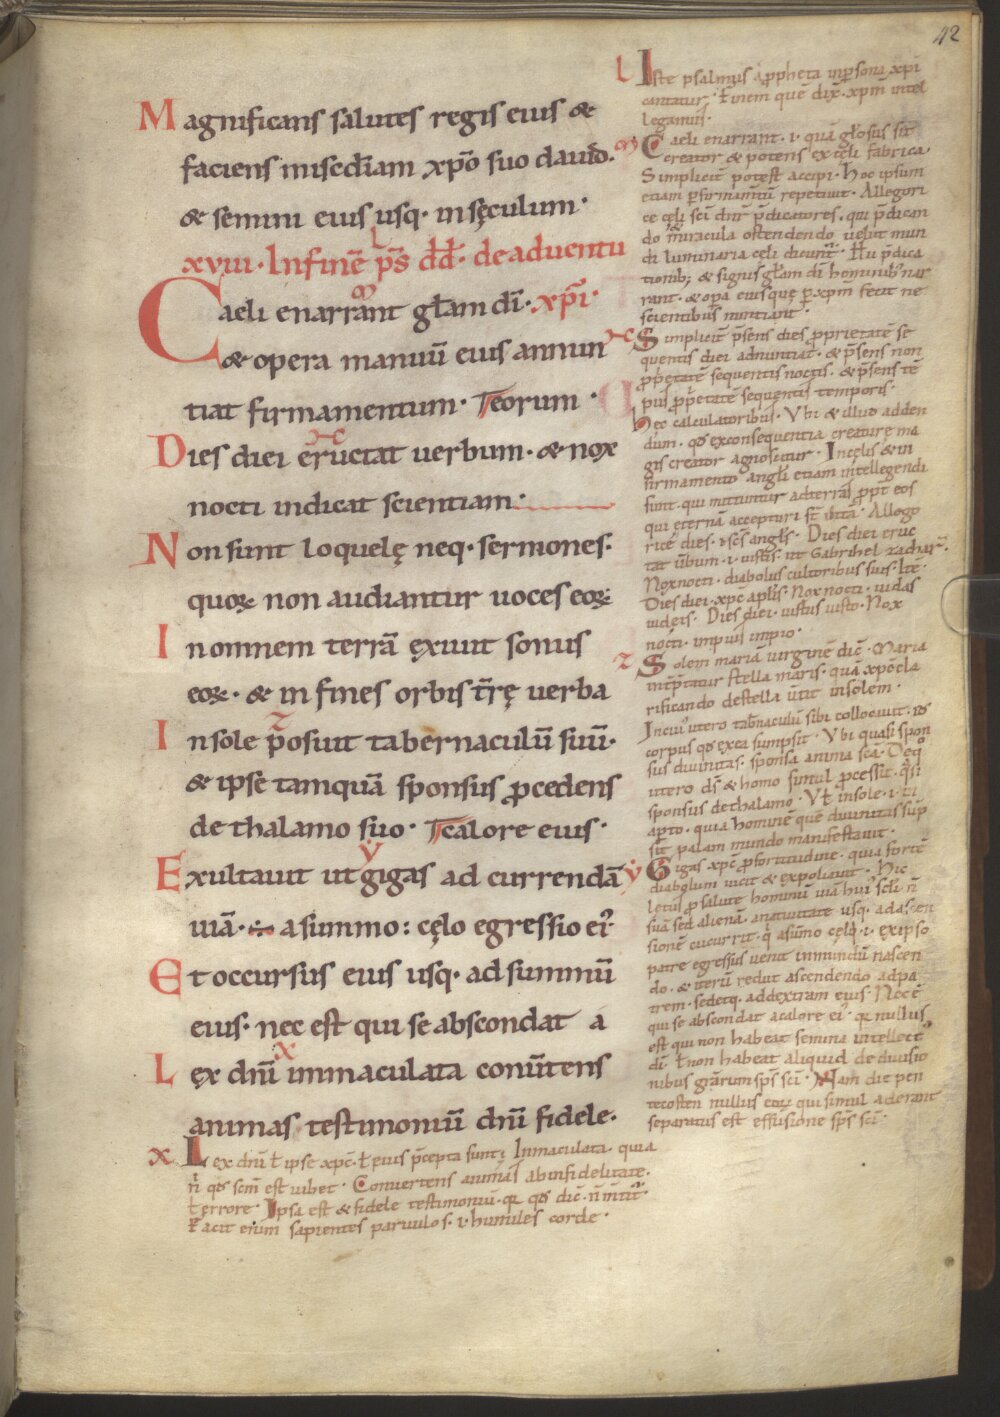 42
Magnificans salutes regis eius &
faciens misedīam xpō suo dauid.
& semini eius usq· insęculum·
xviii· Infinē p̄s dd̄· de aduentu
Caeli enarrant gl̄am dī· xpī·
& opera manuū eius annun
tiat firmamentum· Teorum·
Dies diei eructat uerbum· & nox
nocti indicat scientiam·
Non sunt loquelę neq· sermones·
quoꝝ non audiantur uoces eoꝝ
In omnem terrā exiuit sonus
eoꝝ· & in fines orbis tr̄ę uerba
In sole posuit tabernaculū suū·
& ipse tamquā sponsus ꝓcedens
de thalamo suo· Tcalore eius·
Exultauit ut gigas ad currendā
uiā· ÷ a summo: cęlo egressio ei᾽
Et occursus eius usq· ad summū
eius· nec est qui se abscondat a
Lex dn̄i immaculata conūtens
animas· testimoniū dn̄i fidele·
l Iste psalmus a ꝓpheta in ꝑsona xpī
cantatur· ł finem quē dix̄· xpm̄ intel
legamus·
m Caeli enarrant· i· quā gl̄osus sit
creator & potens ex cęli fabrica
Simplicit̄ potest accipi· Hoc ipsum
etiam ꝑ firmamtū repetiuit· Allegori
ce cęli sc̄i dn̄r p̄dicatores· qui p̄dican
do & miracula ostendendo uelut mun
di luminaria cęli dicunt᾽·
tionib; & signis gl̄am dī hominib᾽ nar
rant· & opa eius quę ꝑ xpm̄ fecit ne
scientibus nuntiant·
Simplicit̄ p̄sens dies ꝓprietatē se
quentis diei adnuntiat· & p̄sens nox
ꝓp̄etatē sequentis noctis· & p̄sens tē
pus ꝓp̄etatē sequentis temporis·
hęc calculatoribus· Vbi & illud adden
dum· qd̄ ex consequentia creaturę ma
gis creator agnoscitur· In cęlis & in
firmamento angl̄i etiam intellegendi
sunt· qui mittuntur ad terras ꝓpt̄ eos
qui eternā accepturi st̄ uitā· Allego
ricē dies· i· sc̄s angl̄s· Dies diei eruc
tat ūbum· i· iustis· ut Gabrihel zachar᾽·
Nox nocti· diabolus cultoribus suis· It̄e
Dies diei· xpc̄ aplīs· Nox nocti· iudas
iudeis· Dies diei· iustus iusto· Nox
nocti· impius impio·
z Solem mariā uirginē dic̄· Maria
int̄p̄tatur stella maris· quā xpc̄ cla
rificando de stella ūtit in solem·
In cui᾽ utero tab̄naculū sibi collocauit· id
corpus qd̄ ex ea sumpsit· Vbi quasi spon
sus diuinitas· sponsa anima sc̄a· De q᾽
utero ds̄ & homo simul ꝓcessit· q̄si
sponsus de thalamo· Vł in sole· i· in
aꝑto· quia hominē quē diuinitas sūp
sit palam mundo manifestauit·
ẏ Gigas xpc̄ ꝓ fortitudine· quia fortē
diabolum uicit & expoliauit· Hic
letus ꝓ salute hominū uiā hui᾽ scl̄i n̄
suā sed alienā· a natiuitate usq· ad ascen
sionē cucurrit· q᾽ a sūmo cęlo· i· ex ipso
patre egressus uenit in mundū nascen
do· & iterū rediit ascendendo ad pa
trem· sedetq· ad dextram eius· Nec ē
qui se abscondat a calore ei᾽· qr nullus
est qui non habeat semina intellect᾽
dī· ł non habeat aliquid de diuisio
nibus gr̄arum sps̄ sc̄i· Nam die pen
tecosten nullus eoꝝ qui simul aderant
separatus est effusione sps̄ sc̄i·
x Lex dn̄i ł ipse xpc̄· ł eius p̄cepta sunt; Inmaculata· quia
n̄ qd̄ scm̄ est iubet· Conuertens animas ab infidelitate·
ł errore· Ipsa est & fidele testimoniū· qr qd̄ dic̄ n̄ mītit᾽·
Facit enim sapientes paruulos· i· humiles corde·